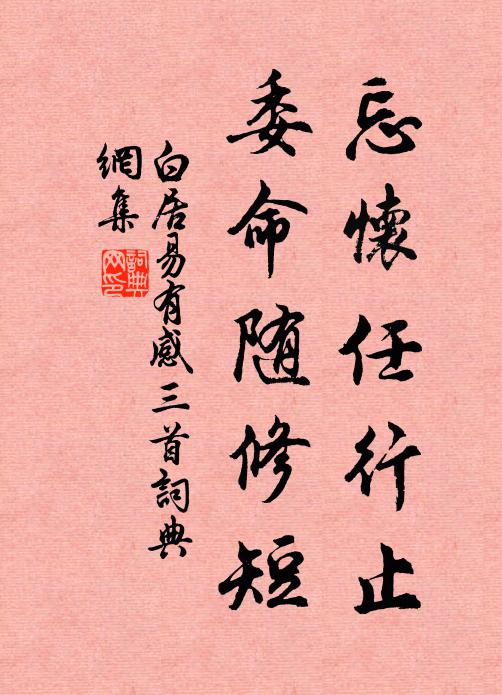 忘懷任行止
委命随修短
白居易有感三首詞典
網集
詞典
网印